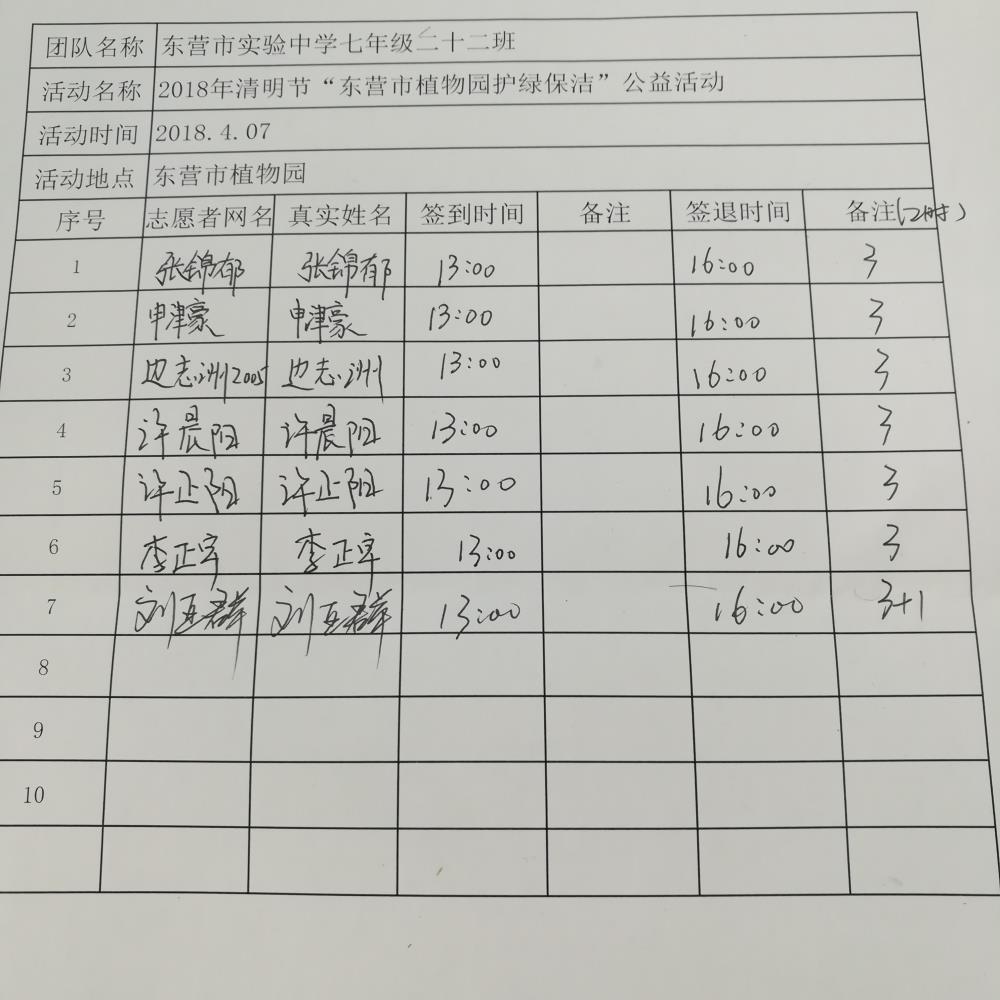 团队名称 东营市实验中学七年级二十二班
活动名称 2018年清明节“东营市植物园护绿保洁”公益活动
活动时间 2018.4.07
活动地点 东营市植物园
序号 志愿者网名 真实姓名 签到时间 备注 签退时间 备注(工时)
1 张锦郁 张锦郁 13:00 16:00 3
2 申津豪 申津豪 13:00 16:00 3
3 边志洲2005 边志洲 13:00 16:00 3
4 许晨阳 许晨阳 13:00 16:00 3
5 许正阳 许正阳 13:00 16:00 3
6 李正宇 李正宇 13:00 16:00 3
7 刘互群 刘互群 13:00 16:00 3+1
8
9
10